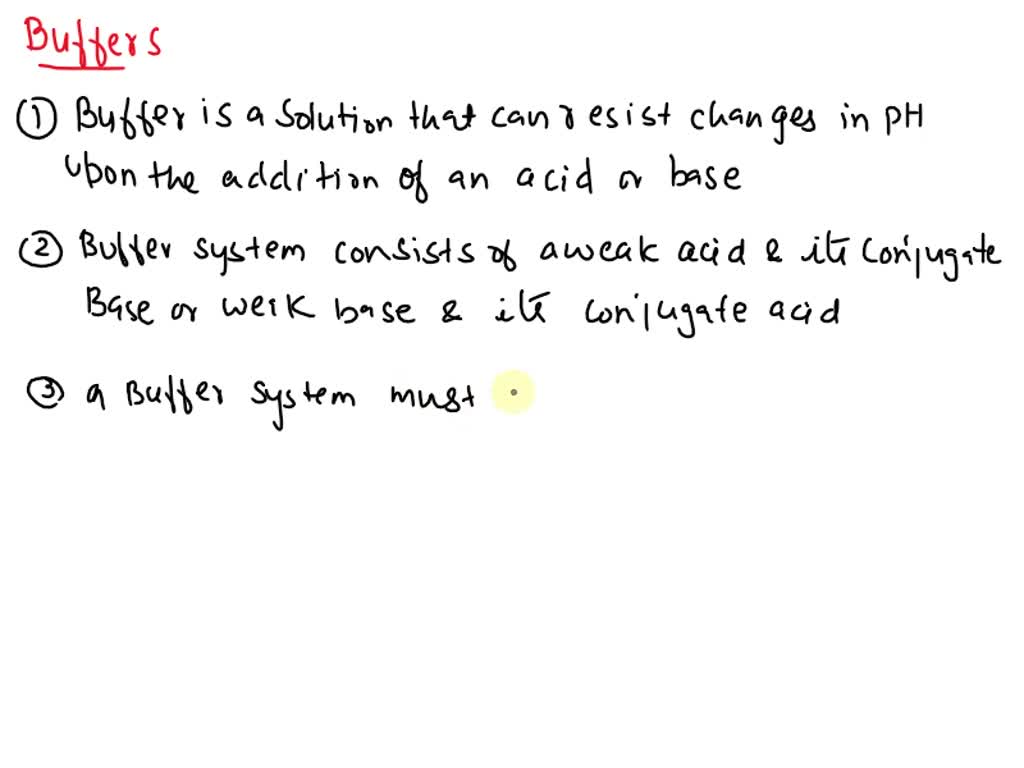 Buffers
① Buffer is a solution that can resist changes in pH
upon the addition of an acid or base
② Buffer system consists of a weak acid & its conjugate
Base or weik base & its conjugate acid
③ a Buffer system must